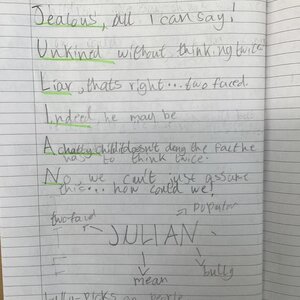 Jealous, all I can say!
Unkind without thinking twice
Liar, thats right... two faced.
Indeed he may be
A chatty child it doesn't deny the fact he
has to think twice.
No, we can't just assume
this... how could we!
two faced popular
JULIAN
mean bully
bully-picks on people